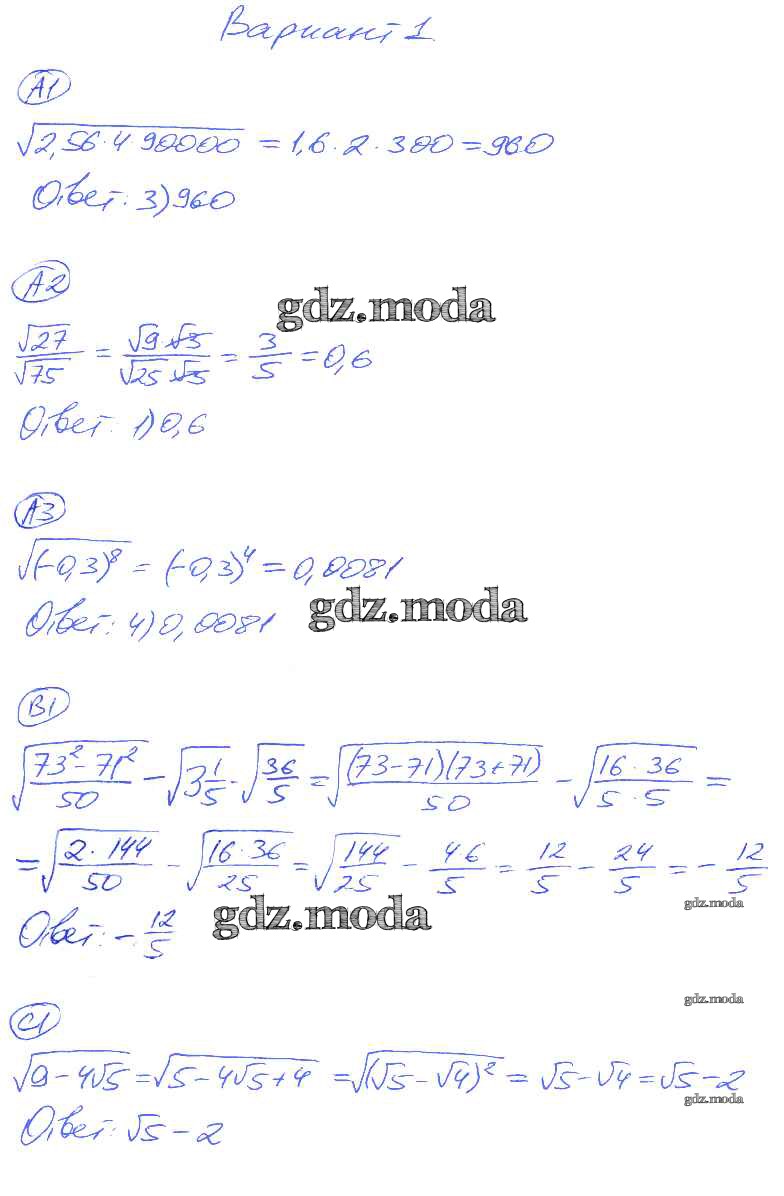 Вариант 1
А1
√(2,56·4 90000) = 1,6·2·300 = 960
Ответ: 3) 960
А2
gdz.moda
√27/√75 = √9·√3/√25·√3 = 3/5 = 0,6
Ответ: 1) 0,6
А3
√((-0,3)⁸) = (-0,3)⁴ = 0,0081
Ответ: 4) 0,0081
gdz.moda
В1
√((73²-71²)/50) - √(3 1/5)·√(36/5) = √((73-71)(73+71)/50) - √((16·36)/(5·5)) =
= √((2·144)/50) - √((16·36)/25) = √(144/25) - 4·6/5 = 12/5 - 24/5 = -12/5
gdz.moda
Ответ: -12/5
gdz.moda
gdz.moda
С1
√(9-4√5) = √(5-4√5+4) = √((√5-√4)²) = √5-√4 = √5-2
gdz.moda
Ответ: √5-2